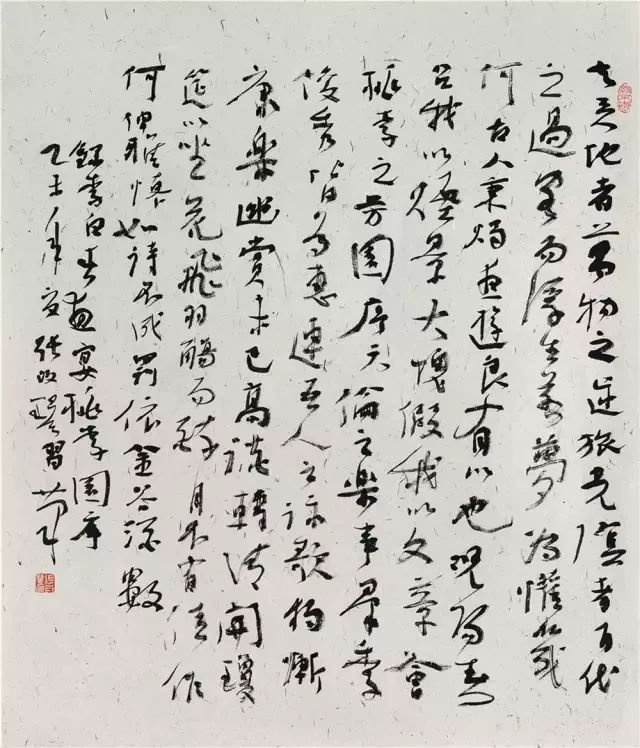 夫天地者萬物之逆旅光陰者百代
之過客而浮生若夢為懽幾
何古人秉燭夜遊良有以也況陽春
召我以煙景大塊假我以文章會
桃李之芳園序天倫之樂事羣季
俊秀皆為惠連吾人之詠歌獨慚
康樂幽賞未已高談轉清開瓊
筵以坐花飛羽觴而醉月不有佳作
何伸雅懷如詩不成罰依金谷酒數
錄李白春夜宴桃李園序
乙未年夏張改琴習